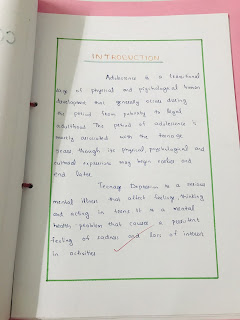 INTRODUCTION
Adolescence is a transitional
stage of physical and psychological human
development that generally occurs during
the period from puberty to legal
adulthood. The period of adolescence is
mostly associated with the teenage
years though its physical, psychological and
cultural expression may begin earlier and
end later.
Teenage Depression is a serious
mental illness that affect feeling, thinking
and acting in teens. It is a mental
health problem that causes a persistent
feeling of sadness and loss of interest
in activities.